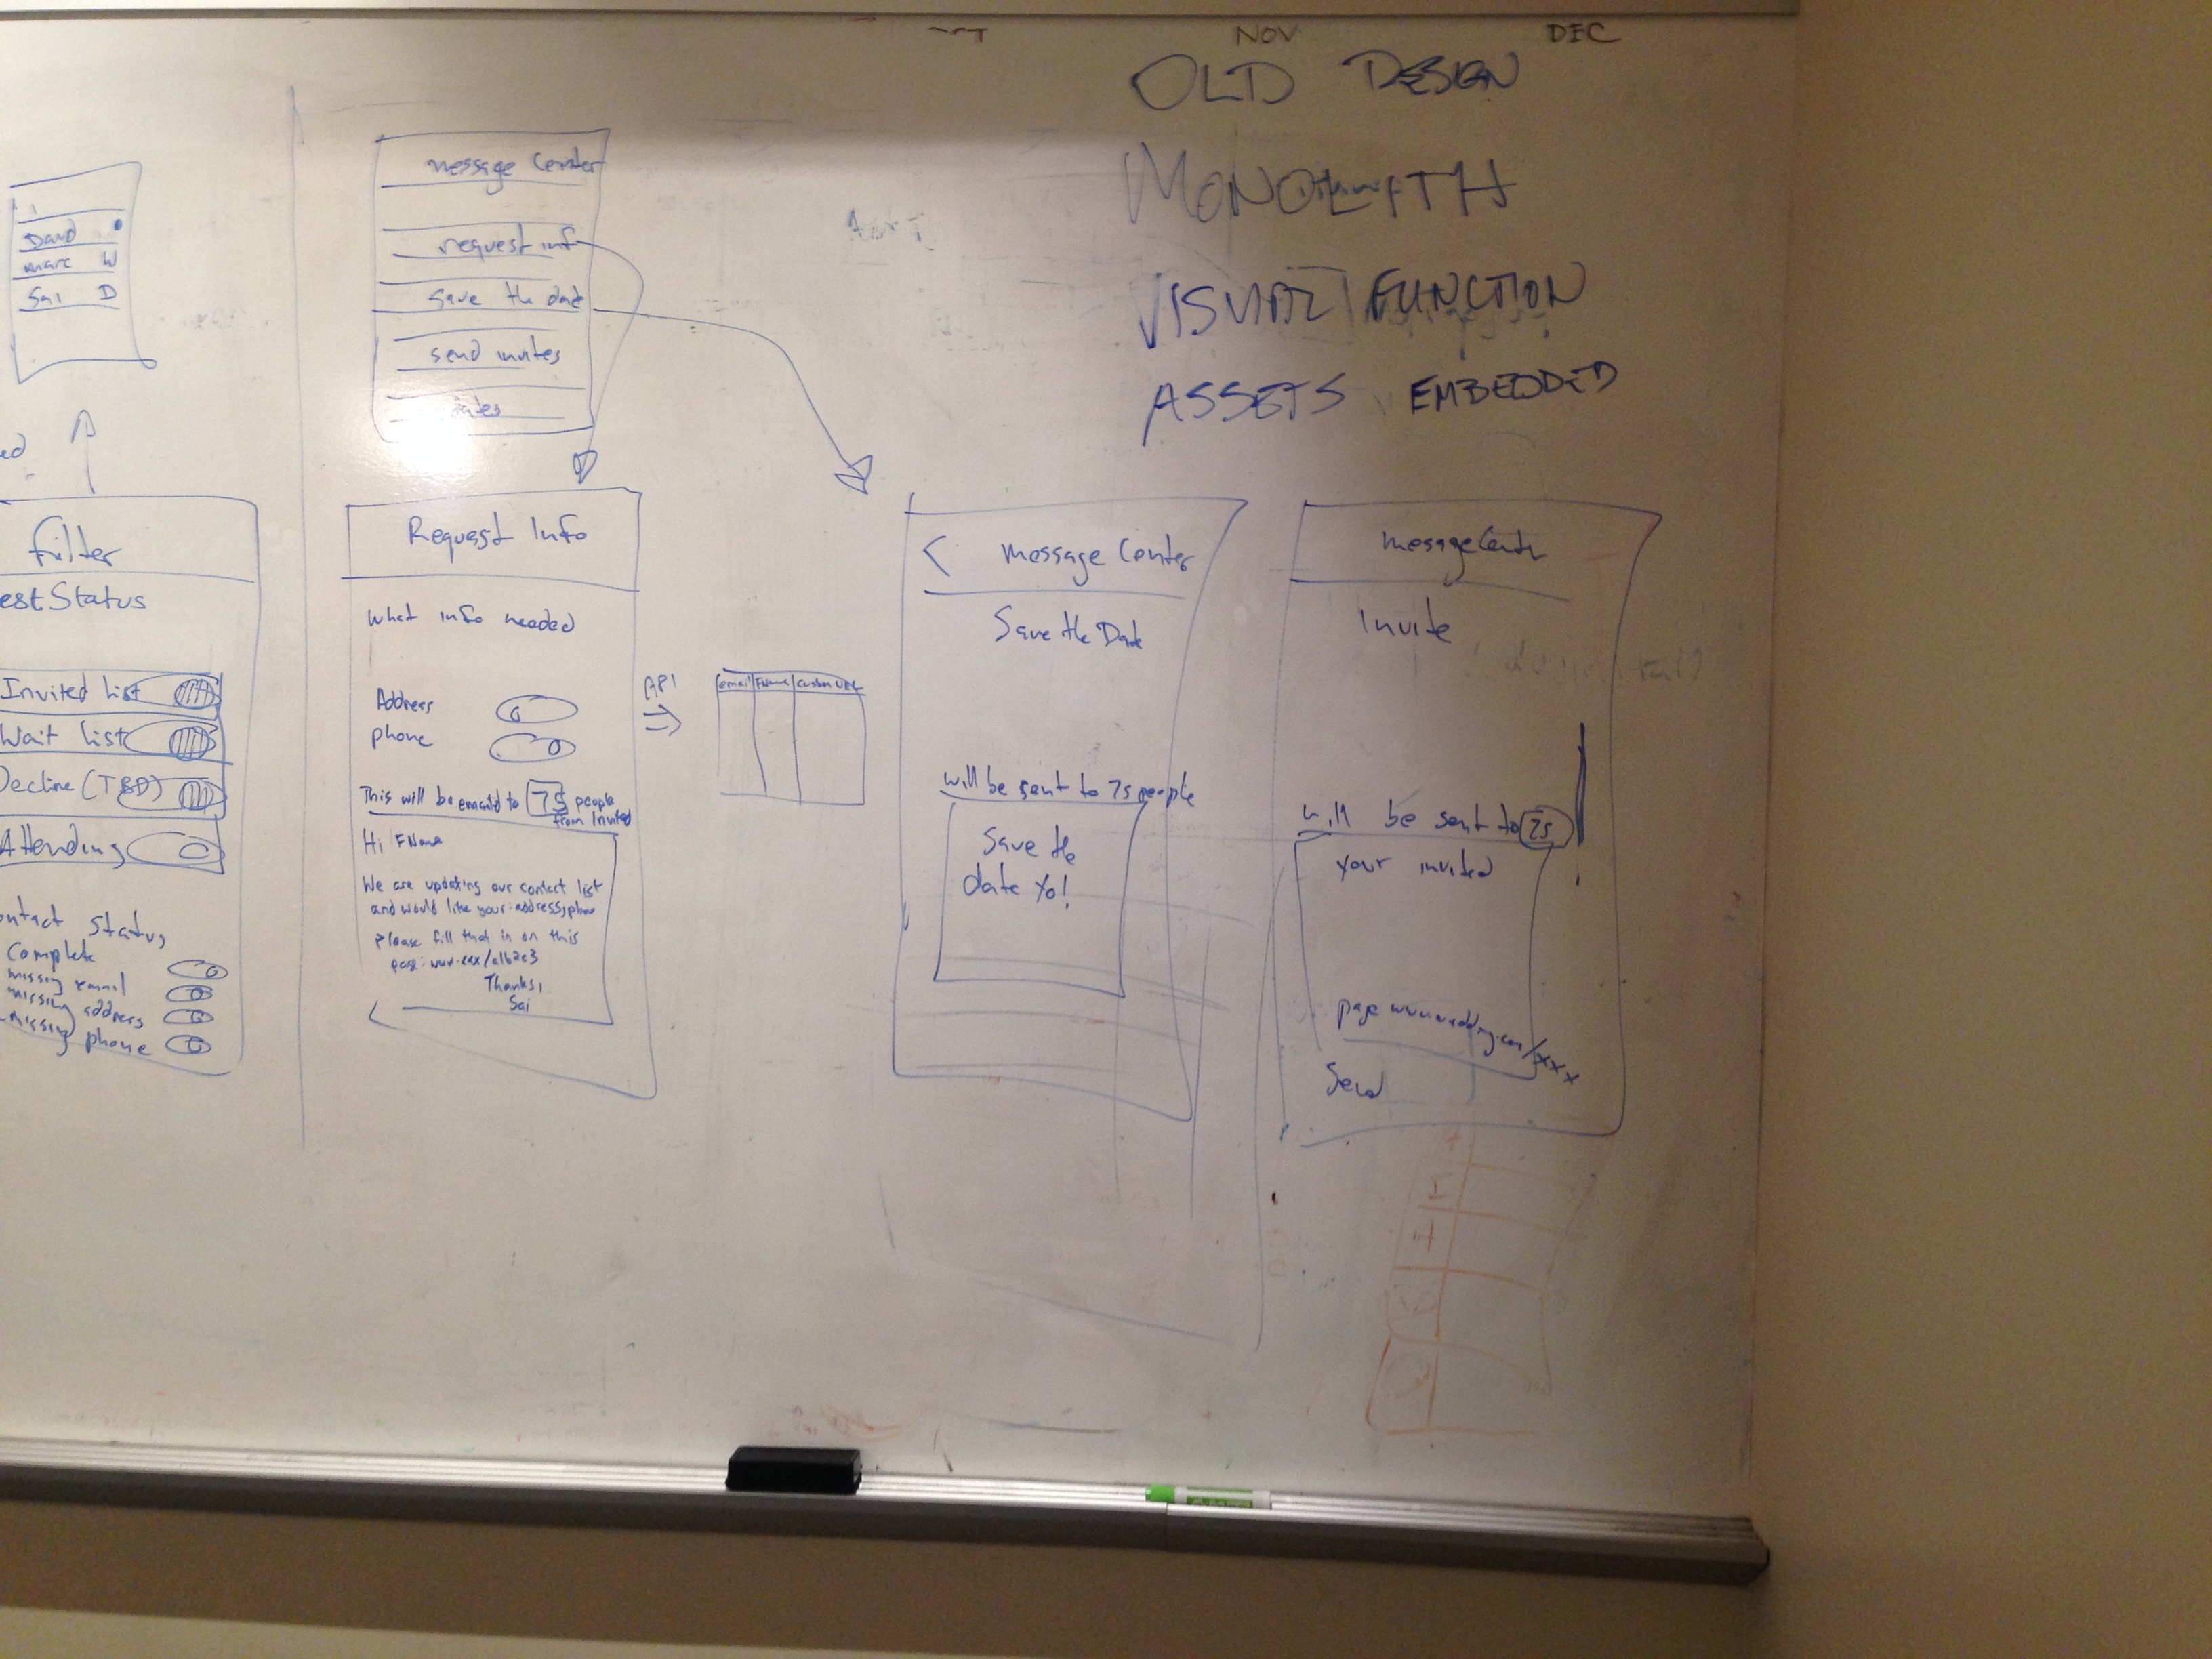 NOV
DEC
OLD DESIGN
MONOLITH
VISUAL FUNCTION
ASSETS EMBEDDED
David
marc W
Sai D
Filter
Status
Invited list
Wait list
Decline (TBD)
Attending
Status
Complete
missing email
missing address
missing phone
message Center
request info
save the date
send invites
Request Info
What info needed
Address
phone
This will be emaild to 75 people
from Invited
Hi FName
We are updating our contact list
and would like your: address, phone
please fill that in on this
page: www.xxx/a1b2c3
Thanks,
Sai
API
email FName Custom URL
< Message Center
Save the Date
will be sent to 75 people
Save the
date Yo!
message Center
Invite
will be sent to 75
your invited
page www.wedding.com/xxx
Send